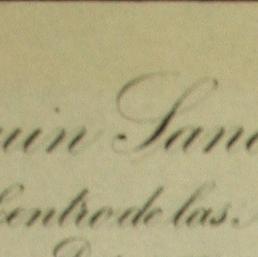 uin San
Centro de las